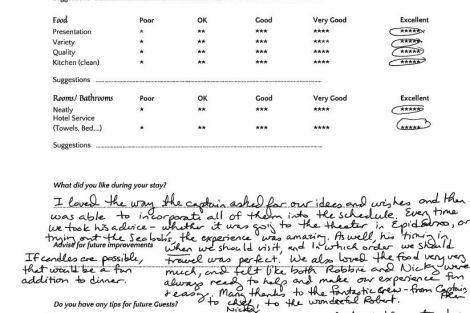 Food Poor OK Good Very Good Excellent
Presentation * ** *** **** *****
Variety * ** *** **** *****
Quality * ** *** **** *****
Kitchen (clean) * ** *** **** *****
Suggestions
Rooms/ Bathrooms Poor OK Good Very Good Excellent
Neatly
Hotel Service
(Towels, Bed...) * ** *** **** *****
Suggestions
What did you like during your stay?
I loved the way the captain asked for our ideas and wishes and then
was able to incorporate all of them into the schedule. Every time
we took his advice - whether it was going to the theater in Epidavros, or
trying out the Seabobs, the experience was amazing. As well, his timing in
Advise for future improvements
when we should visit, and in which order we should
If candles are possible, travel was perfect. We also loved the food very very
that would be a fun much, and felt like both Robbie and Nicky were
addition to dinner. always ready to help and make our experience fun
& easy. Many thanks to the fantastic crew - from Captain
Do you have any tips for future Guests?
to chef, to the wonderful Robert.
Nicky